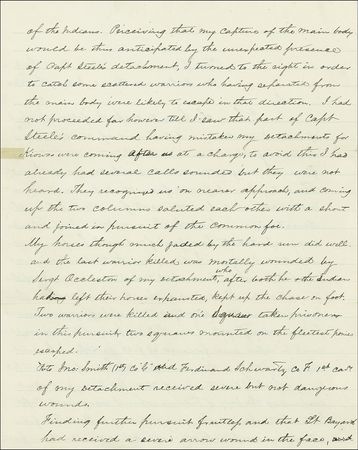 of the Indians. Perceiving that my capture of the main body
would be thus anticipated by the unexpected presence
of Capt Steele's detachment, I turned to the right in order
to catch some scattered warriors who having separated from
the main body were likely to escape in that direction. I had
not proceeded far however till I saw that part of Capt
Steele's command having mistaken my detachments for
Kiowas were coming after us at a charge, to avoid this I had
already had several calls sounded but they were not
heard. They recognized us on nearer approach, and coming
up the two columns saluted each other with a shout
and joined in pursuit of the common foe.
My horses though much jaded by the hard run did well
and the last warrior killed was mortally wounded by
Sergt Occleston of my detachment, who after both he & the Indian
had left their horses exhausted, kept up the chase on foot.
Two warriors were killed and one squaw taken prisoner
in this pursuit, two squaws mounted on the fleetest ponies
escaped.
Pvts Jno. Smith and Ferdinand Schwartz Co F. 1st cavy
of my detachment received severe but not dangerous
wounds.
Finding further pursuit fruitless, and that Lt Bayard
had received a severe arrow wound in the face,